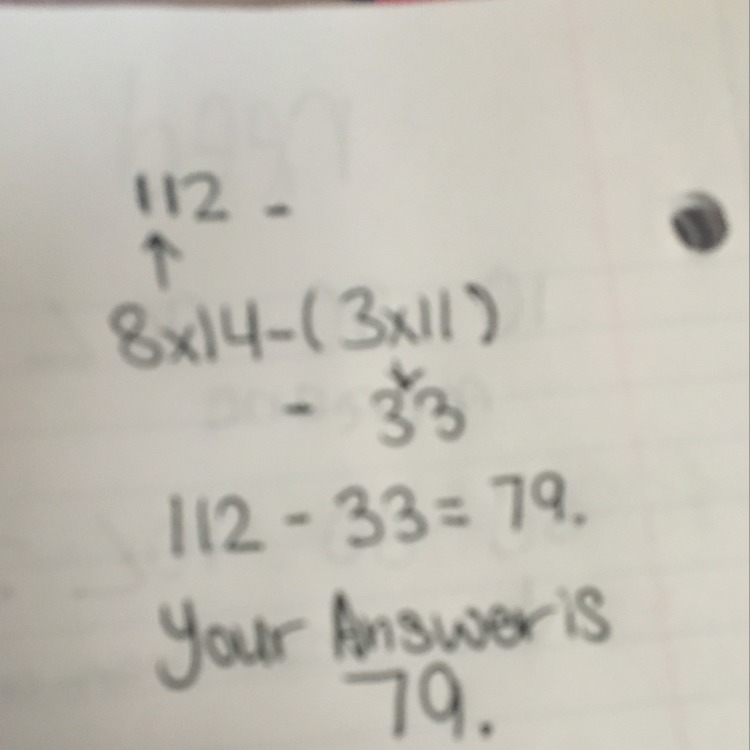 112 -
↑
8x14-(3x11)
- 33
112 - 33 = 79.
Your Answer is
79.